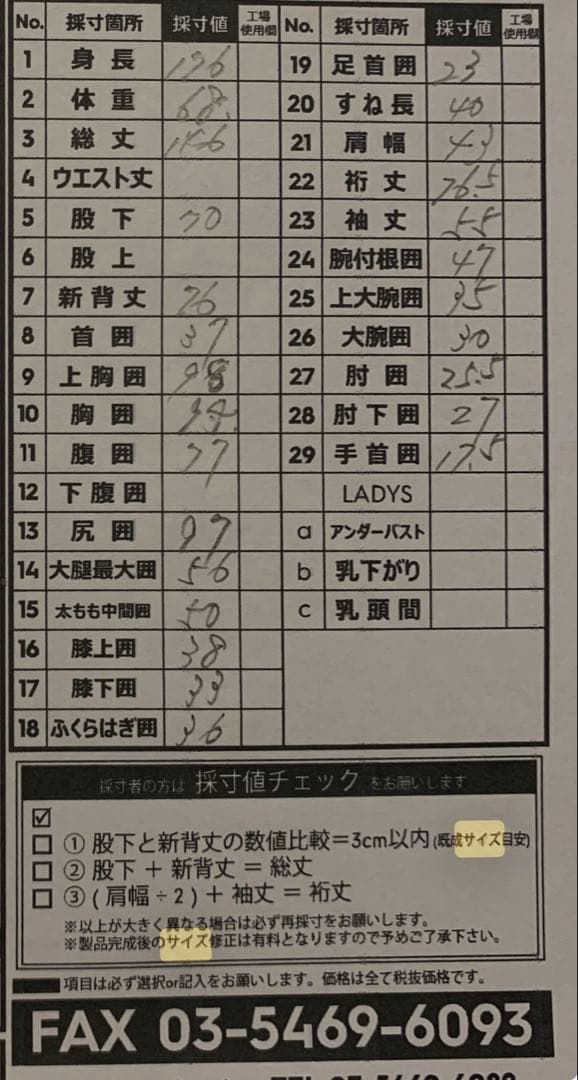 No. 採寸箇所 採寸値 工場使用欄 No. 採寸箇所 採寸値 工場使用欄
1 身長 176 19 足首囲 23
2 体重 68. 20 すね長 40
3 総丈 146 21 肩幅 43
4 ウエスト丈 22 裄丈 76.5
5 股下 70 23 袖丈 55
6 股上 24 腕付根囲 47
7 新背丈 76 25 上大腕囲 35
8 首囲 37 26 大腕囲 30
9 上胸囲 98 27 肘囲 25.5
10 胸囲 28 肘下囲 27
11 腹囲 77 29 手首囲 17.5
12 下腹囲 LADYS
13 尻囲 97 a アンダーバスト
14 大腿最大囲 56 b 乳下がり
15 太もも中間囲 50 c 乳頭間
16 膝上囲 38
17 膝下囲 33
18 ふくらはぎ囲 36
採寸者の方は 採寸値チェック をお願いします
☑
□ ① 股下と新背丈の数値比較=3cm以内(既成サイズ目安)
□ ② 股下 + 新背丈 = 総丈
□ ③ ( 肩幅 ÷ 2 ) + 袖丈 = 裄丈
※以上が大きく異なる場合は必ず再採寸をお願いします。
※製品完成後のサイズ修正は有料となりますので予めご了承下さい。
項目は必ず選択or記入をお願いします。価格は全て税抜価格です。
FAX 03-5469-6093